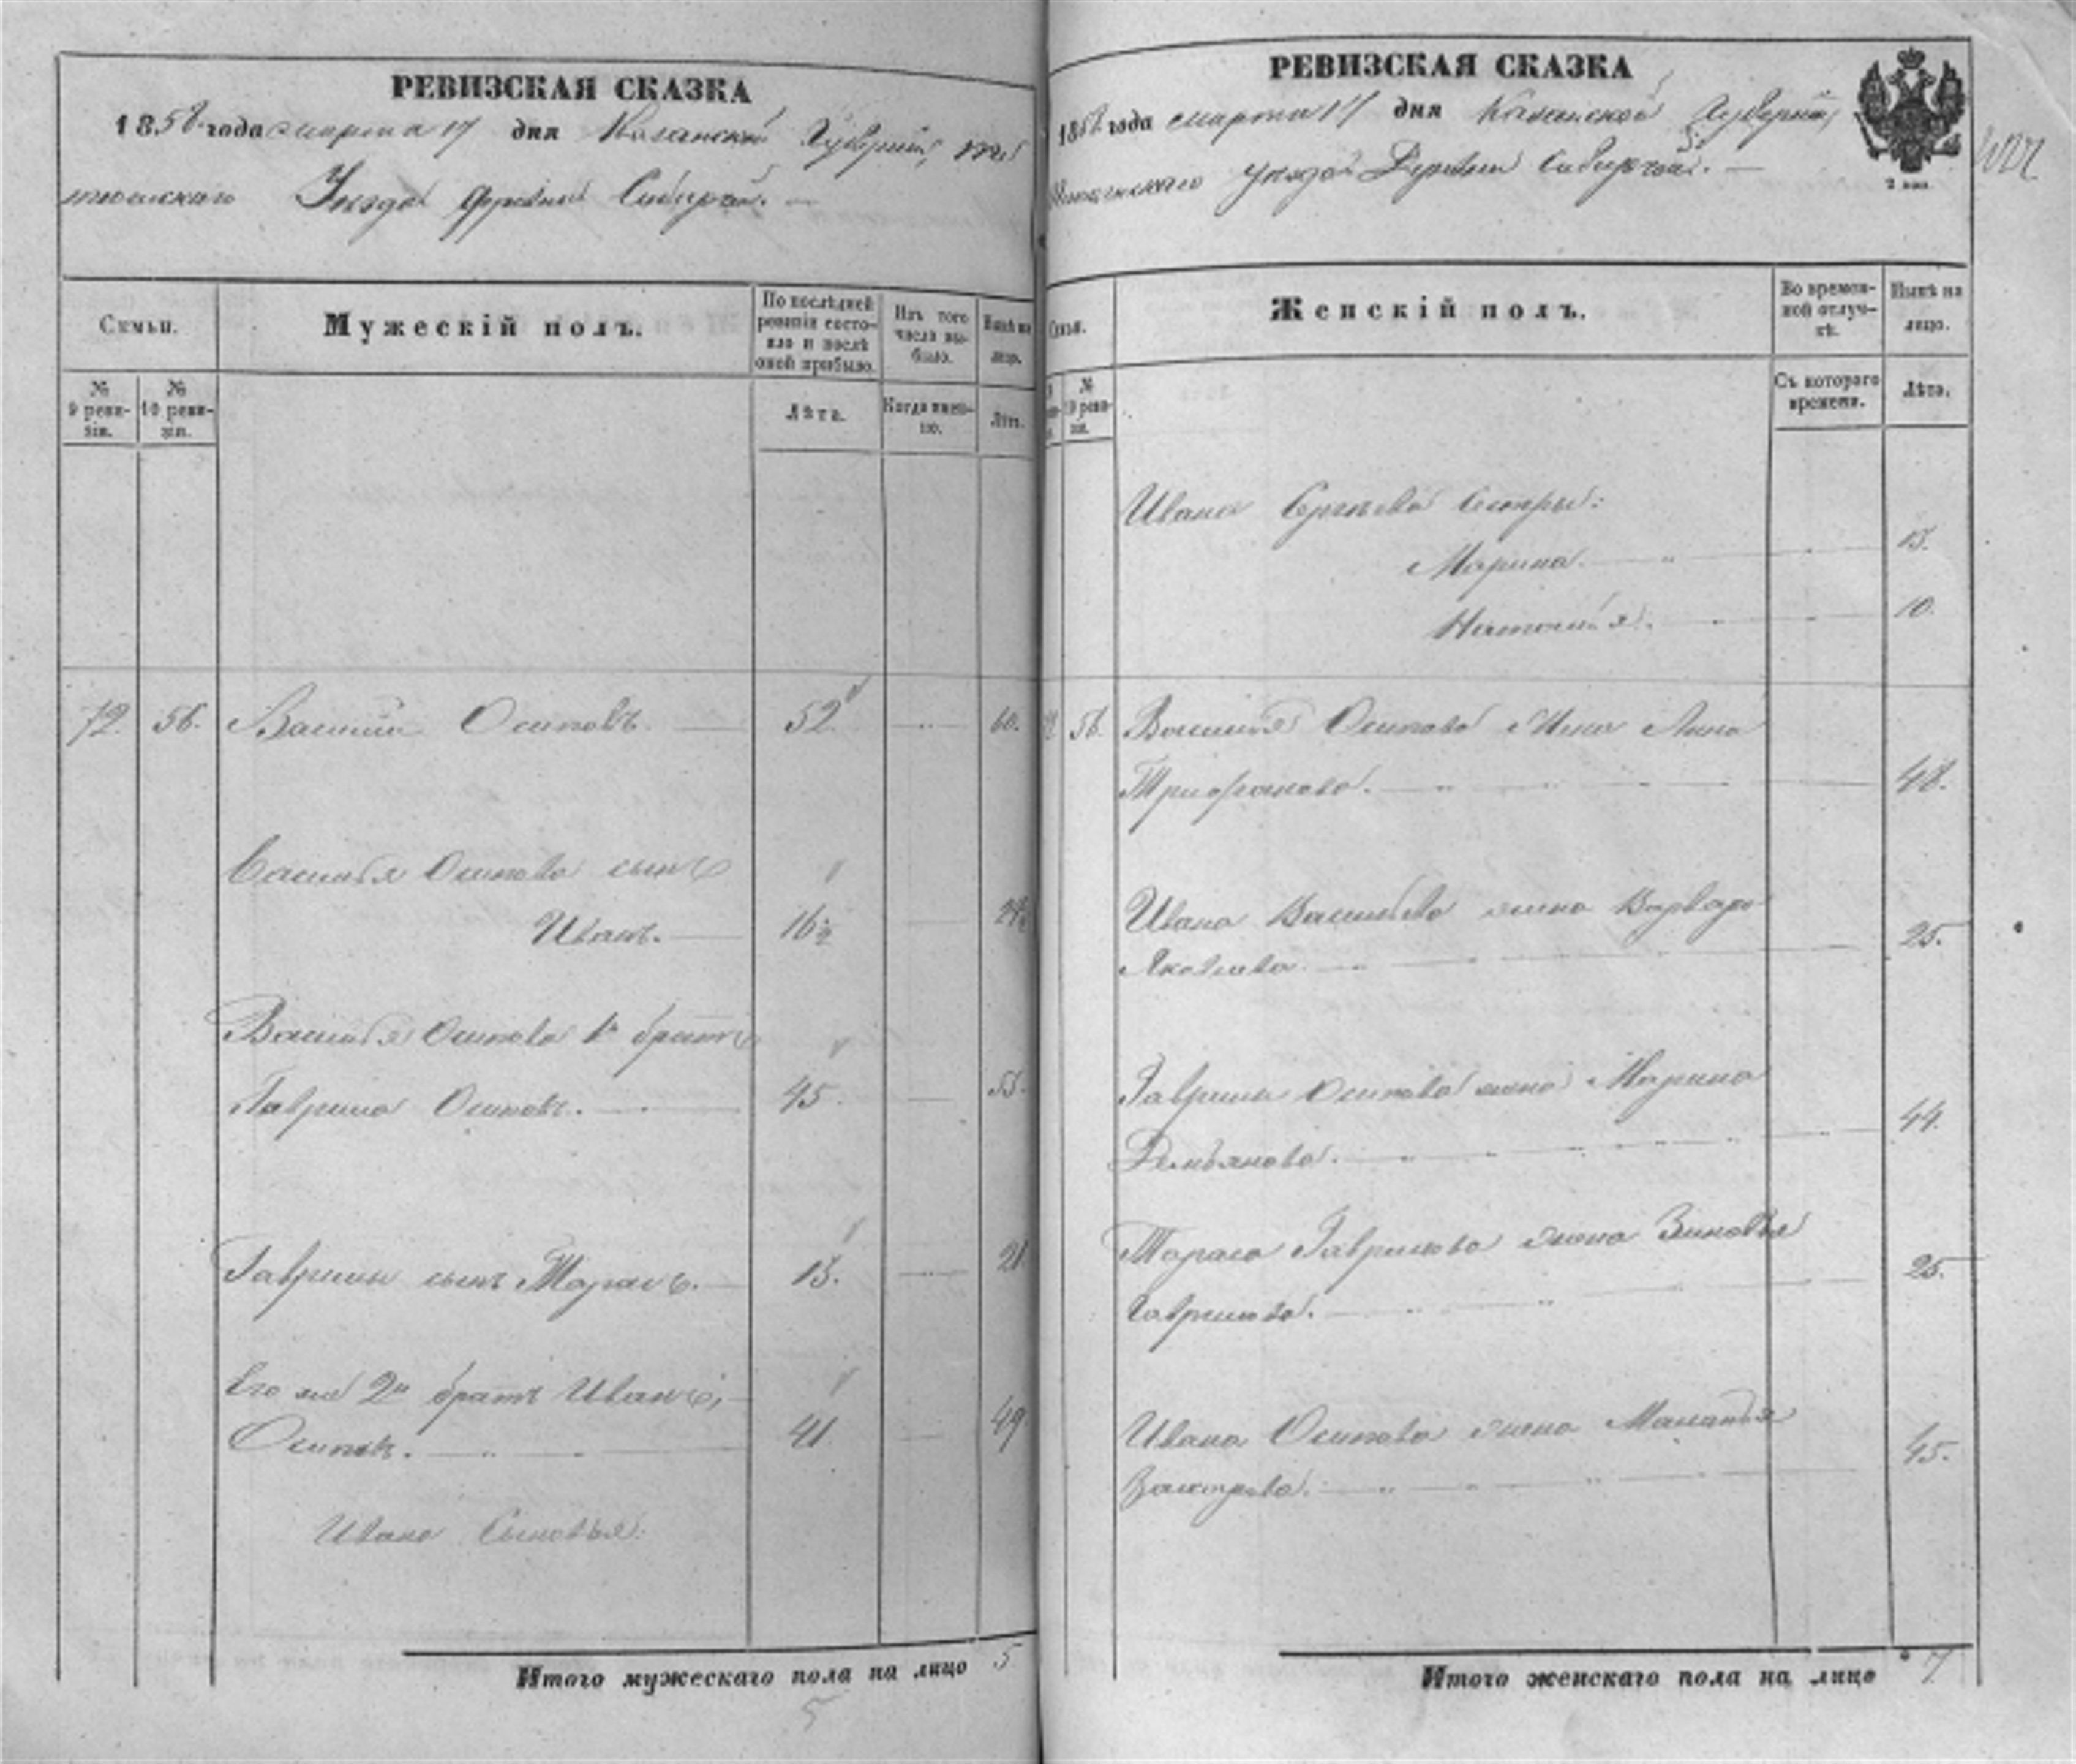 РЕВИЗСКАЯ СКАЗКА
1858 года марта 17 дня Казанской Губерніи, Те
тюшскаго Уезда Деревни Сибирчи. —
Семьи.
Мужескій полъ.
По послѣдней ревизіи состояло и послѣ оной прибыло.
Изъ того числа выбыло.
Нынѣ на лицо.
№ 9 ревизіи.
№ 10 ревизіи.
Лѣта.
Когда именно.
Лѣта.
72. 56. Василій Осиповъ. — 52 60.
Василья Осипова сынъ
Иванъ. — 16½ 24½
Василья Осипова 1й братъ
Гаврила Осиповъ. — 45. 53.
Гаврилы сынъ Тарасъ. — 13. 21
Его же 2й братъ Иванъ,
Осиповъ. — 41 49
Ивана Сыновья:
Итого мужескаго пола на лицо 5
5
РЕВИЗСКАЯ СКАЗКА
1858 года марта 17 дня Казанской Губерніи,
Тетюшскаго Уезда Деревни Сибирчи. —
2 коп.
Семьи.
Женскій полъ.
Во временной отлучкѣ.
Нынѣ на лицо.
№ 10 ревизіи.
Съ котораго времени.
Лѣта.
Ивана Сергѣева Сестры:
Марина. — 13.
Наталія. — 10.
56. Василья Осипова Жена Анна
Трифонова. — 48.
Ивана Васильева жена Варвара
Яковлева. — 25.
Гаврилы Осипова жена Марина
Демьянова. — 44.
Тараса Гаврилова жена Зиновья
Гаврилова. — 25.
Ивана Осипова жена Маланья
45.
Итого женскаго пола на лицо 7